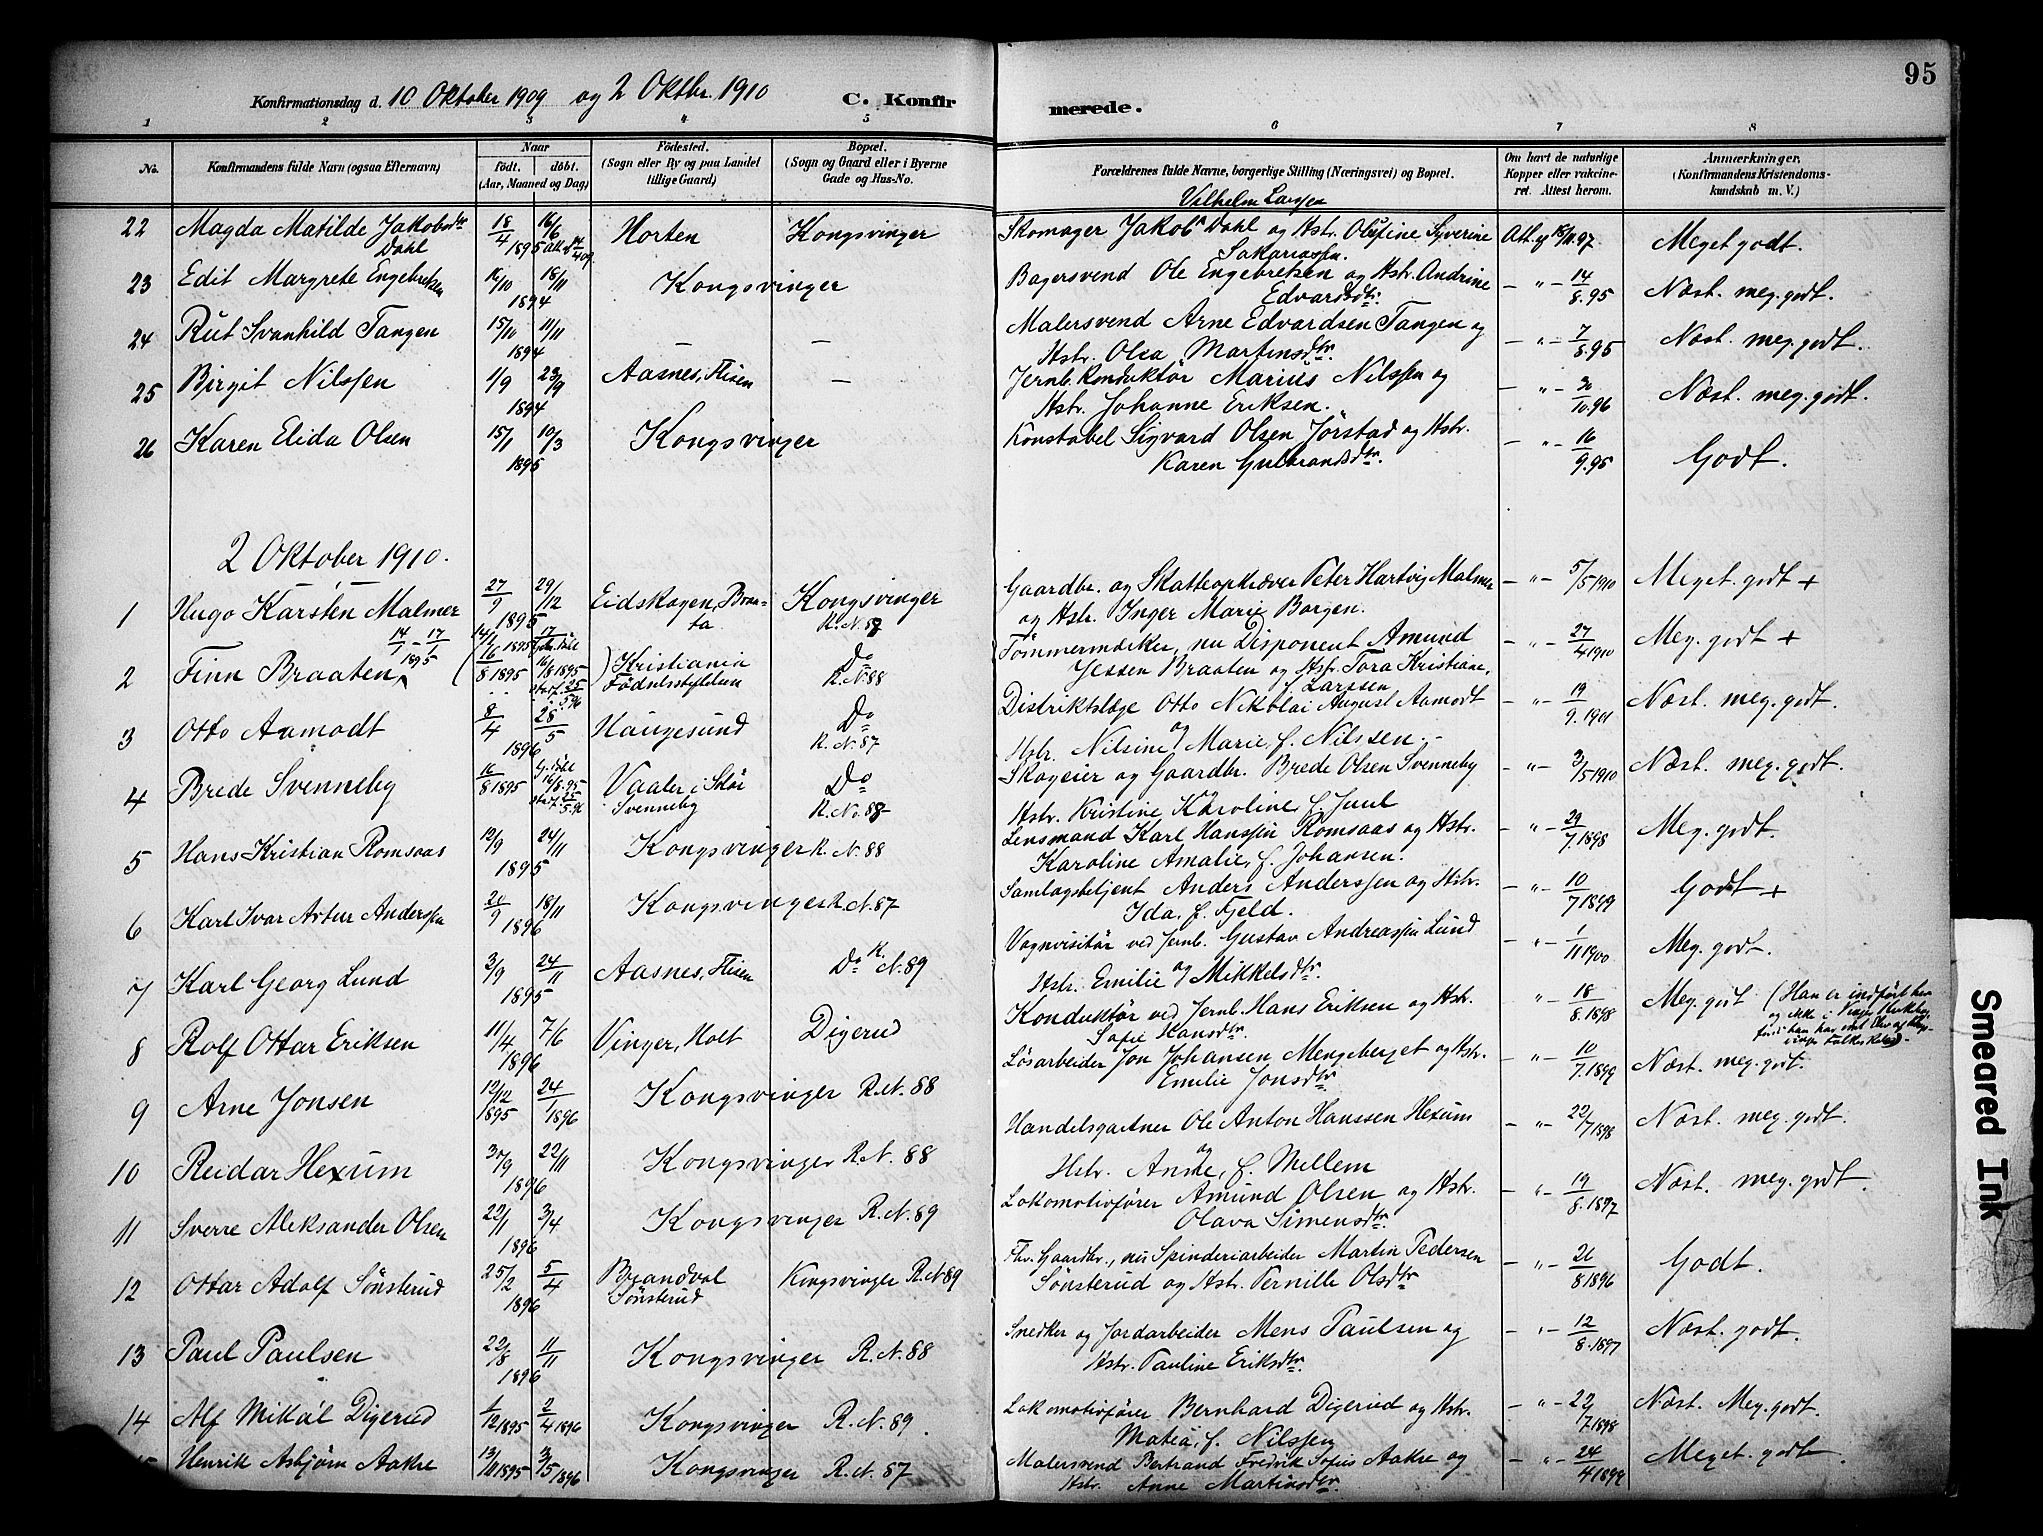 95
Konfirmationsdag d. 10 Oktober 1909 og 2 Oktbr. 1910 C. Konfirmerede.
1 2 3 4 5 6 7 8
No. Konfirmandens fulde Navn (ogsaa Efternavn) Naar født. døbt. (Aar, Maaned og Dag) Fødested. (Sogn eller By og paa Landet tillige Gaard) Bopæl. (Sogn og Gaard eller i Byerne Gade og Hus-No. Forældrenes fulde Navne, borgerlige Stilling (Næringsvei) og Bopæl. Om havt de naturlige Kopper eller vakcineret. Attest herom. Anmærkninger. (Konfirmandens Kristendomskundskab m. V.)
22 Magda Matilde Jakobsdtr Dahl 18/4 1895 16/6 Horten Kongsvinger Skomager Jakob Vilhelm Larsen Dahl og Hstr. Olufine Syverine Sakariassen. Att. af 18/11.97. Meget godt.
23 Edit Margrete Engebretsen 16/10 1894 18/11 Kongsvinger Bagersvend Ole Engebretsen og Hstr. Andrine Edvardsdtr. - " - 14/8.95 Næst. meg. godt.
24 Rut Svanhild Tangen 15/10 1894 11/11 — Malersvend Arne Edvardsen Tangen og Hstr. Olea Martinsdtr. - " - 7/8.95 Næst. meg. godt.
25 Birgit Nilssen 1/9 1894 23/9 Aasnes, Flisen — Jernb. Konduktør Marius Nilssen og Hstr. Johanne Eriksen. - " - 30/10.96 Næst. meg. godt.
26 Karen Elida Olsen 15/1 1895 10/3 Kongsvinger Konstabel Sigvard Olsen Jørstad og Hstr. Karen Gulbrandsdtr. - " - 16/9.95 Godt.
2 Oktober 1910.
1 Hugo Karsten Malmer 27/9 1895 29/12 Eidskogen, Braata Kongsvinger R. N. 87 Gaardbr. og Skatteopkræver Peter Hartvig Malmer og Hstr. Inger Marie Borgen. - " - 5/5 1910 Meget godt +
2 Finn Braaten 14/1 - 17/1 1895 (16/8 1895 16/8 1895) Kristiania Fødselsstiftelsen Do R. N. 88 Tømmermærker, nu Disponent Amund Jessen Braaten og Hstr. Tora Kristiane, f. Larssen - " - 27/4 1910 Meg. godt +
3 Otto Aamodt 8/4 1896 28/5 Haugesund Do R. N. 87 Distriktslæge Otto Nikolai August Aamodt og Hstr. Nilsine Marie, f. Nilssen. - " - 19/9.1901 Næst. meg. godt.
4 Brede Svenneby 16/8 1895 16/8.95 Vaaler i Solør Svenneby Do R. No. 88 Skogeier og Gaardbr. Brede Olsen Svenneby Hstr. Kristine Karoline, f. Juul - " - 3/5 1910 Næst. meg. godt.
5 Hans Kristian Romsaas 12/9 1895 24/11 Kongsvinger R. N. 88 Lensmand Karl Hanssen Romsaas og Hstr. Karoline Amalie, f. Johansen. - " - 29/7.1898 Meg. godt.
6 Karl Ivar Artur Anderssen 20/9 1896 18/11 Kongsvinger R. N. 87 Samlagsbetjent Anders Anderssen og Hstr. Ida, f. Fjeld. - " - 10/7 1899 Godt +
7 Karl Georg Lund 3/9 1895 24/11 Aasnes, Flisen Do R. N. 89 Vognvisitør ved Jernb. Gustav Andreassen Lund og Hstr. Emilie Mikkelsdtr. - " - 1/11 1900 Meg. godt.
8 Rolf Ottar Eriksen 11/4 1896 7/6 Vinger, Holt Digerud Konduktør ved Jernb. Hans Eriksen og Hstr. Sofie Hansdtr. " - 18/8.1898 Meg. godt (Han er indført her og ikke i Vinger Kirkebog fordi han har
9 Arne Jonsen 12/12 1895 24/1 1896 Kongsvinger R. N. 88 Løsarbeider Jon Johansen Mengeberget og Hstr. Emilie Jonsdtr - " - 10/7.1899 Næst. meg. godt.
10 Reidar Hexum 30/9 1896 22/11 Kongsvinger R. N. 88 Handelsgartner Ole Anton Hanssen Hexum og Hstr. Anne, f. Mellem - " - 22/7 1898 Næst. meg. godt.
11 Sverre Aleksander Olsen 22/1 1896 3/4 Kongsvinger R. N. 89 Lokomotivfører Amund Olsen og Hstr. Olava Simensdtr. - " - 19/8.1897 Næst. meg. godt.
12 Ottar Adolf Sønsterud 25/2 1896 5/4 Brandval Sønsterud Kongsvinger R. N. 89 Fhv. Gaardbr., nu Spinderiarbeider Martin Pedersen Sønsterud og Hstr. Pernille Olsdtr - " - 26/8 1896 Godt.
13 Paul Paulsen 22/8 1896 11/11 Kongsvinger R. N. 88 Snedker og Jordarbeider Mens Paulsen og Hstr. Pauline Eriksdtr. - " - 12/8.1897 Næst. godt.
14 Alf Mikal Digerud 1/12 1895 2/4 1896 Kongsvinger R. N. 89. Lokomotivfører Bernhard Digerud og Hstr. Matea, f. Nilssen - " - 22/7.1898 Næst. Meg. godt.
Henrik Asbjørn Aakre 13/11 1895 3/5 1896 Kongsvinger R. N. 87 Malersvend Bertrand Fredrik Sofus Aakre og Hstr. Anne Martinsdtr. - " - 24/4 1899 Meget godt.
Smeared Ink